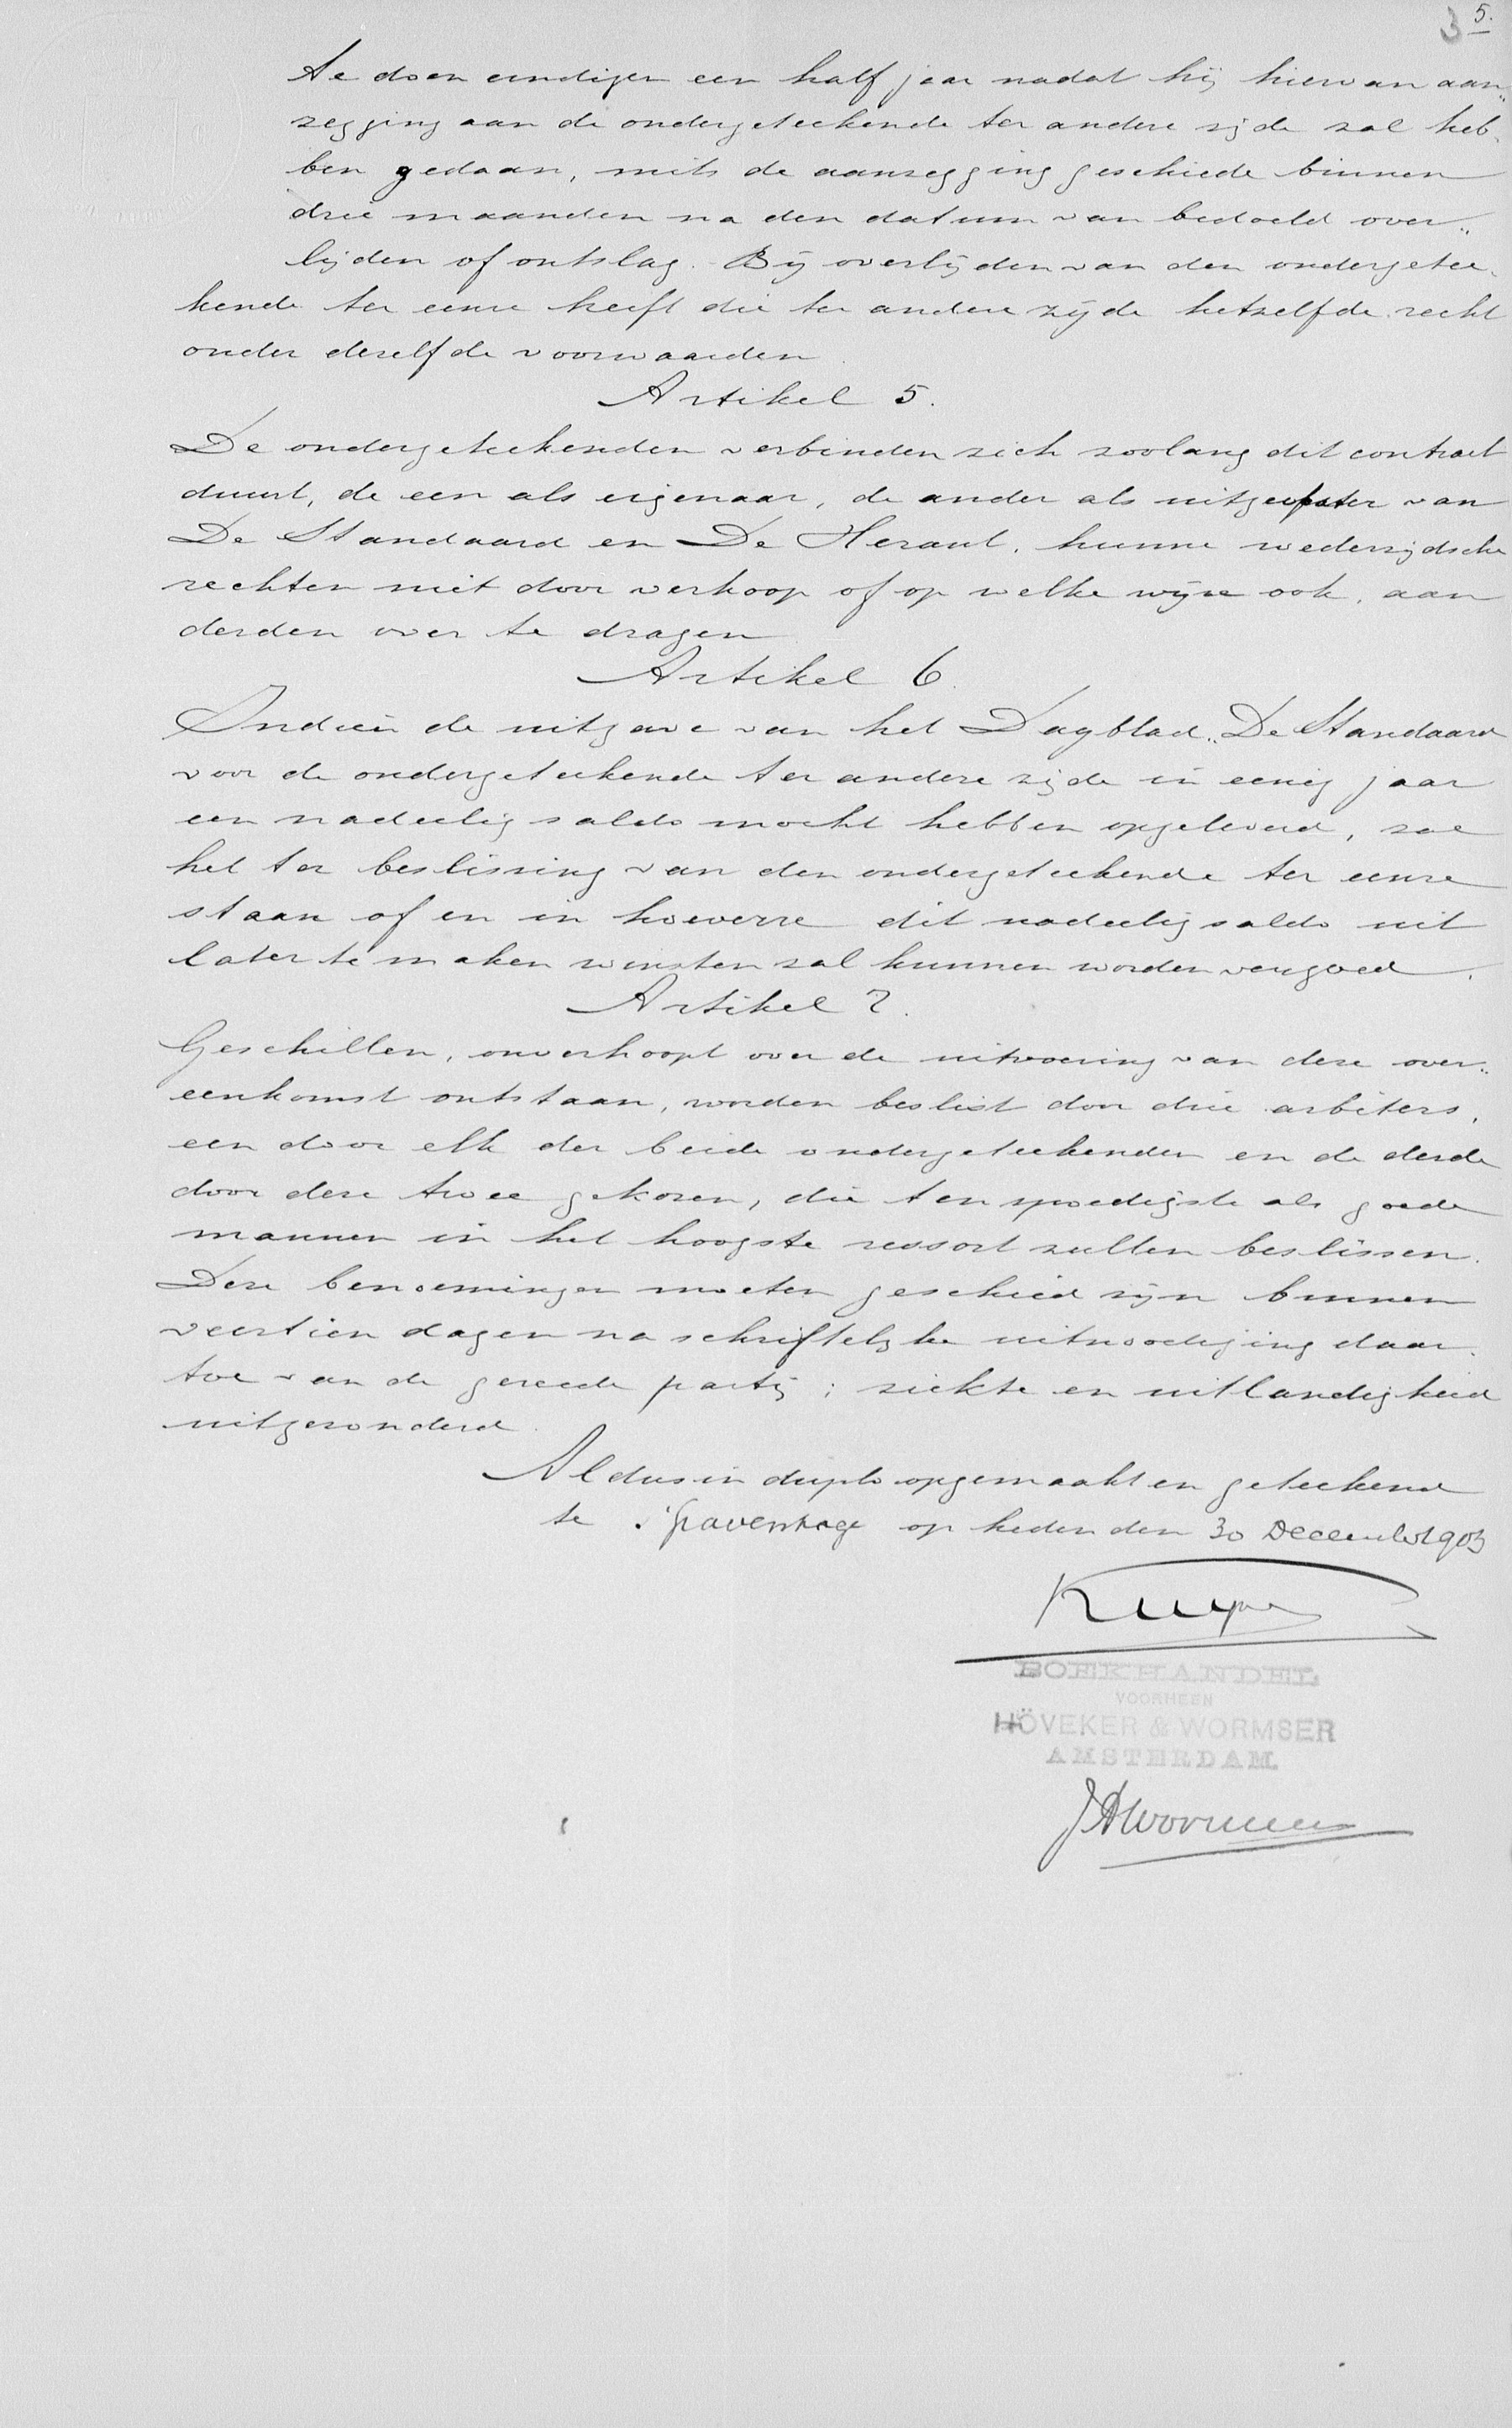 3 5.
te doen eindigen een half jaar nadat hij hiervan aan„
zegging aan de ondergeteekende ter andere zijde zal heb„
ben gedaan, mits de aanzegging geschiede binnen
drie maanden na den datum van bedoeld over„
lijden of ontslag. Bij overlijden van den ondergetee„
kende ter eenre heeft die ter andere zijde hetzelfde recht
onder dezelfde voorwaarden.
Artikel 5.
De ondergeteekenden verbinden zich zoolang dit contract
duurt, de een als eigenaar, de ander als van
De Standaard en De Heraut, hunne wederzijdsche
rechten niet door verkoop of op welke wijze ook, aan
derden over te dragen
Artikel 6.
Indien de uitgave van het Dagblad „De Standaard
voor de ondergeteekende ter andere zijde in eenig jaar
een nadeelig saldo mocht hebben opgeleverd, zal
het ter beslissing van den ondergeteekende ter eenre
staan of en in hoeverre dit nadeelig saldo uit
later te maken winsten zal kunnen worden vergoed.
Artikel 7.
Geschillen, onverhoopt over de uitvoering van deze over„
eenkomst ontstaan, worden beslist door drie arbiters,
een door elk der beide ondergeteekenden en de derde
door deze twee gekozen, die ten spoedigste als goede
mannen in het hoogste ressort zullen beslissen.
Deze benoemingen moeten geschied zijn binnen
veertien dagen na schriftelijke uitnoodiging daar„
toe van de gereede partij; ziekte en uitlandigheid
uitgezonderd.
Aldus in duplo opgemaakt en geteekend
te 's Gravenhage op heden den 30 December 1903
Kuyper
BOEKHANDEL
VOORHEEN
HÖVEKER & WORMSER
AMSTERDAM.
JAWormser